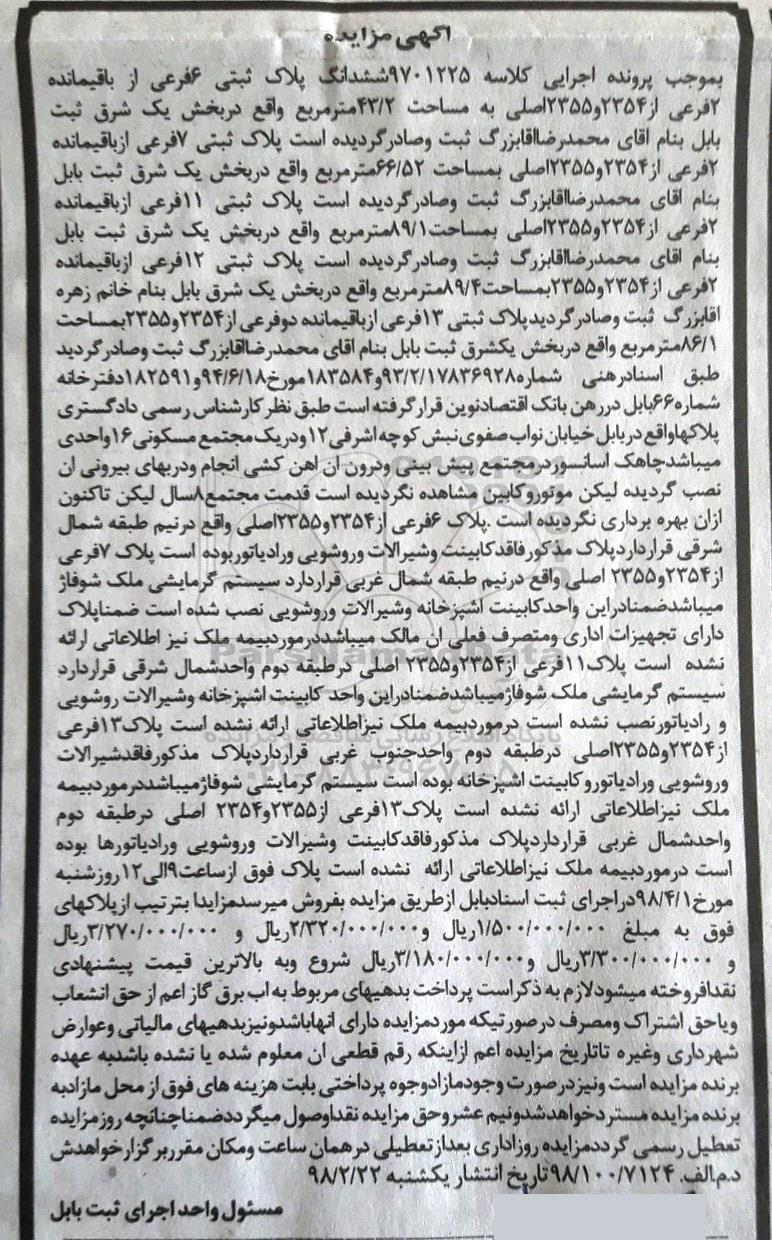 اگهی مزایده
بموجب پرونده اجرایی کلاسه ۹۷۰۱۲۲۵ششدانگ پلاک ثبتی ۶فرعی از باقیمانده
۲فرعی از۲۳۵۴و۲۳۵۵اصلی به مساحت ۴۳/۲مترمربع واقع دربخش یک شرق ثبت
بابل بنام اقای محمدرضااقابزرگ ثبت وصادرگردیده است پلاک ثبتی ۷فرعی ازباقیمانده
۲فرعی از۲۳۵۴و۲۳۵۵اصلی بمساحت ۶۶/۵۲مترمربع واقع دربخش یک شرق ثبت بابل
بنام اقای محمدرضااقابزرگ ثبت وصادرگردیده است پلاک ثبتی ۱۱فرعی ازباقیمانده
۲فرعی از۲۳۵۴و۲۳۵۵اصلی بمساحت۸۹/۱مترمربع واقع دربخش یک شرق ثبت بابل
بنام اقای محمدرضااقابزرگ ثبت وصادرگردیده است پلاک ثبتی ۱۲فرعی ازباقیمانده
۲فرعی از۲۳۵۴و۲۳۵۵بمساحت۸۹/۴مترمربع واقع دربخش یک شرق بابل بنام خانم زهره
اقابزرگ ثبت وصادرگردیدپلاک ثبتی ۱۳فرعی ازباقیمانده دوفرعی از۲۳۵۴و۲۳۵۵بمساحت
۸۶/۱مترمربع واقع دربخش یکشرق ثبت بابل بنام اقای محمدرضااقابزرگ ثبت وصادرگردید
طبق اسنادرهنی شماره۹۳/۲/۱۷۸۳۶۹۲۸و۱۸۳۵۸۴مورخ۹۴/۶/۱۸و۱۸۲۵۹۱دفترخانه
شماره۶۶بابل دررهن بانک اقتصادنوین قرارگرفته است طبق نظرکارشناس رسمی دادگستری
پلاکهاواقع دربابل خیابان نواب صفوی نبش کوچه اشرفی۱۲ودریک مجتمع مسکونی۱۶واحدی
میباشدچاهک اسانسوردرمجتمع پیش بینی ودرون ان اهن کشی انجام ودربهای بیرونی ان
نصب گردیده لیکن موتوروکابین مشاهده نگردیده است قدمت مجتمع۸سال لیکن تاکنون
ازان بهره برداری نگردیده است .پلاک ۶فرعی از۲۳۵۴و۲۳۵۵اصلی واقع درنیم طبقه شمال
شرقی قرارداردپلاک مذکورفاقدکابینت وشیرالات وروشویی ورادیاتوربوده است پلاک ۷فرعی
از۲۳۵۴و۲۳۵۵ اصلی واقع درنیم طبقه شمال غربی قراردارد سیستم گرمایشی ملک شوفاژ
میباشدضمنادراین واحدکابینت اشپزخانه وشیرالات وروشویی نصب شده است ضمناپلاک
دارای تجهیزات اداری ومتصرف فعلی ان مالک میباشددرموردبیمه ملک نیز اطلاعاتی ارائه
نشده است پلاک۱۱فرعی از۲۳۵۴و۲۳۵۵ اصلی درطبقه دوم واحدشمال شرقی قراردارد
سیستم گرمایشی ملک شوفاژمیباشدضمنادراین واحد کابینت اشپزخانه وشیرالات روشویی
و رادیاتورنصب نشده است درموردبیمه ملک نیزاطلاعاتی ارائه نشده است پلاک۱۳فرعی
از۲۳۵۴و۲۳۵۵اصلی درطبقه دوم واحدجنوب غربی قرارداردپلاک مذکورفاقدشیرالات
وروشویی ورادیاتوروکابینت اشپزخانه بوده است سیستم گرمایشی شوفاژمیباشددرموردبیمه
ملک نیزاطلاعاتی ارائه نشده است پلاک۱۳فرعی از۲۳۵۵و۲۳۵۴ اصلی درطبقه دوم
واحدشمال غربی قرارداردپلاک مذکورفاقدکابینت وشیرالات وروشویی ورادیاتورها بوده
است درموردبیمه ملک نیزاطلاعاتی ارائه نشده است پلاک فوق ازساعت۹الی۱۲روزشنبه
مورخ۹۸/۴/۱دراجرای ثبت اسنادبابل ازطریق مزایده بفروش میرسدمزایدا بترتیب ازپلاکهای
فوق به مبلغ ۱/۵۰۰/۰۰۰/۰۰۰ریال و۲/۳۲۰/۰۰۰/۰۰۰ریال و ۳/۲۷۰/۰۰۰/۰۰۰ریال
و ۳/۳۰۰/۰۰۰/۰۰۰ریال و۳/۱۸۰/۰۰۰/۰۰۰ریال شروع وبه بالاترین قیمت پیشنهادی
نقدافروخته میشودلازم به ذکراست پرداخت بدهیهای مربوط به اب برق گاز اعم از حق انشعاب
ویاحق اشتراک ومصرف درصورتیکه موردمزایده دارای انهاباشدونیزبدهیهای مالیاتی وعوارض
شهرداری وغیره تاتاریخ مزایده اعم ازاینکه رقم قطعی ان معلوم شده یا نشده باشدبه عهده
برنده مزایده است ونیزدرصورت وجودمازادوجوه پرداختی بابت هزینه های فوق از محل مازادبه
برنده مزایده مسترد خواهدشدونیم عشروحق مزایده نقداوصول میگرددضمناچنانچه روزمزایده
تعطیل رسمی گرددمزایده روزاداری بعدازتعطیلی درهمان ساعت ومکان مقرربرگزارخواهدش
د.م.الف. ۹۸/۱۰۰/۷۱۲۴تاریخ انتشار یکشنبه ۹۸/۲/۲۲
مسئول واحد اجرای ثبت بابل
ParsNamadData